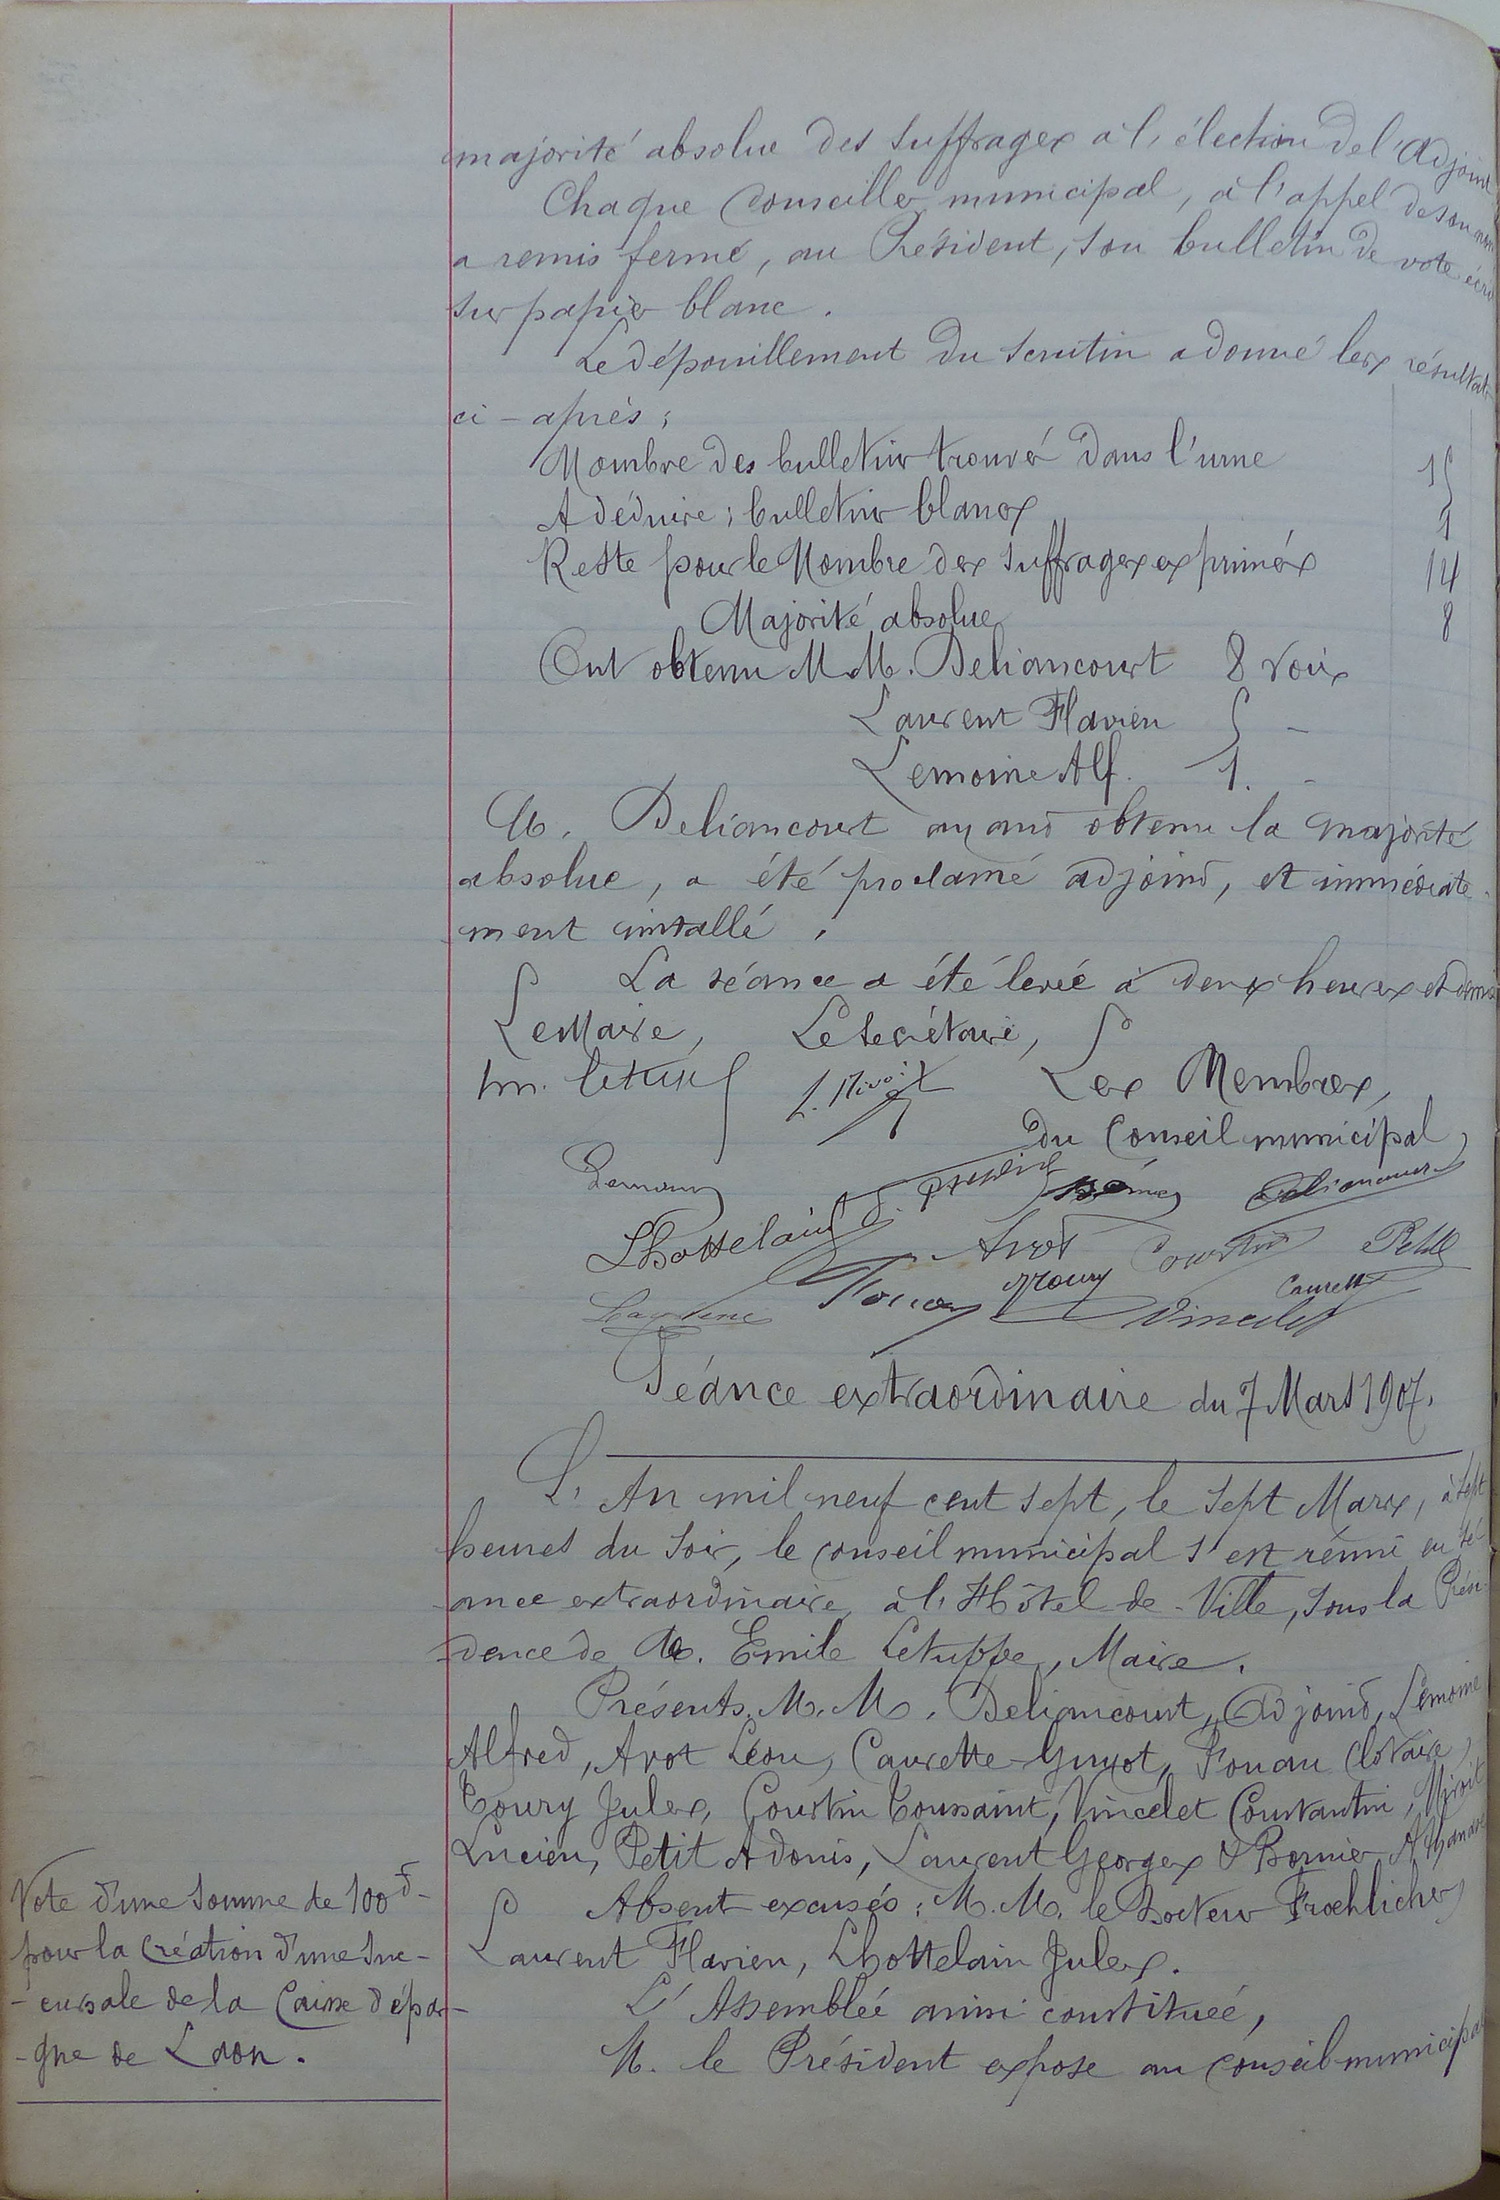 majorité absolue des suffrages à l'élection de l'Adjoint
Chaque Conseiller municipal, à l'appel de son nom
a remis fermé, au Président, son bulletin de vote écrit
sur papier blanc.
Le dépouillement du scrutin a donné les résultats
ci-après :
Nombre des bulletins trouvés dans l'urne 15
A déduire : bulletins blancs 1
Reste pour le Nombre des suffrages exprimés 14
Majorité absolue 8
Ont obtenu M.M. Deliancourt 8 voix
Laurent Flavien 5 -
Lemoine Alf. 1. -
M. Deliancourt ayant obtenu la majorité
absolue, a été proclamé adjoint, et immédiate-
ment installé.
La séance a été levée à deux heures et demie
Le Maire, Le Secrétaire,
Les Membres,
Em. Letuppe L. Miroit
du Conseil municipal,
Lemoine Deliancourt
Lhottelain Avot Courtin Petit
Fouan Toury Caurette
Vincelet
Séance extraordinaire du 7 Mars 1907.
L'An mil neuf cent sept, le sept Mars, à sept
heures du soir, le conseil municipal s'est réuni en sé
ance extraordinaire, à l'Hôtel-de-Ville, sous la Prési-
dence de M. Emile Letuppe, Maire.
Présents. M.M. Deliancourt, Adjoint, Lemoine
Alfred, Avot Léon, Caurette-Guyot, Fouan Clotaire,
Toury Jules, Courtin Toussaint, Vincelet Constantin, Miroit
Lucien, Petit Adonis, Laurent Georges & Bonnier Athanase
Absent excusés : M.M. le Docteur Froehlicher,
Laurent Flavien, Lhottelain Jules.
L'Assemblée ainsi constituée,
M. le Président expose au conseil municipal
Vote d'une somme de 100 f-
pour la création d'une suc-
-cursale de la Caisse d'épar-
-gne de Laon.